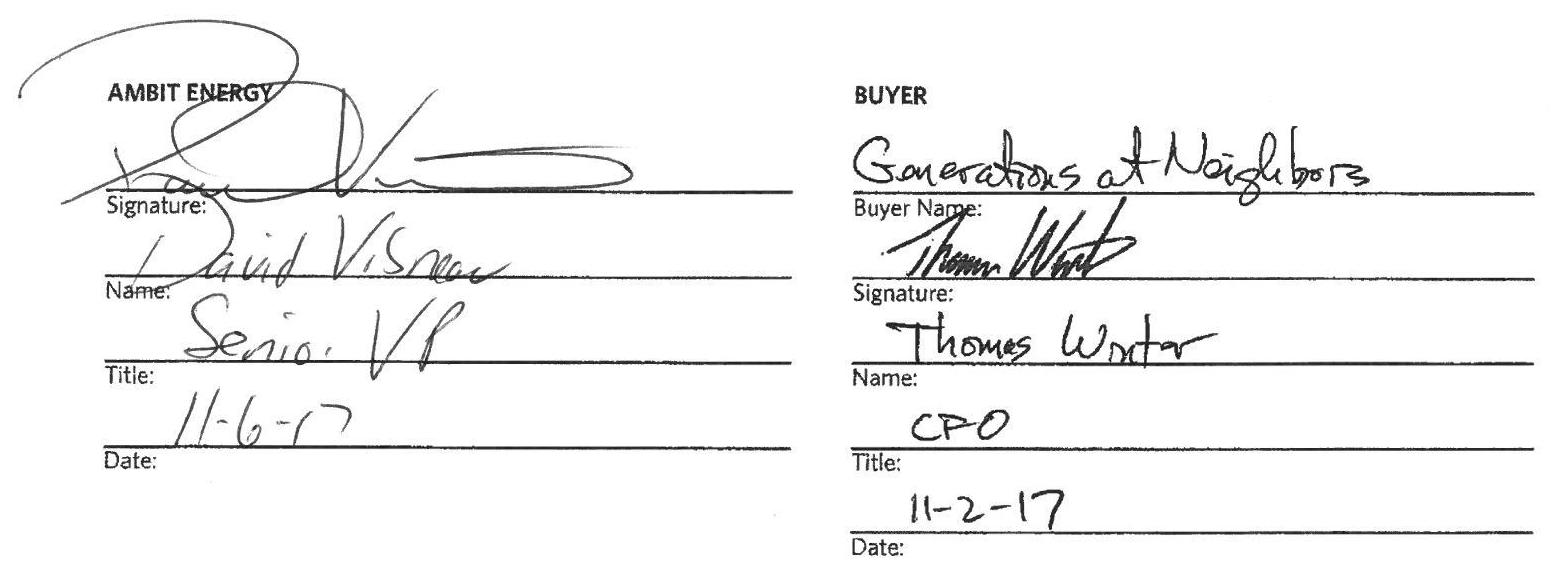 AMBIT ENERGY
Signature:
David Visneau
Name:
Senior VP
Title:
11-6-17
Date:
BUYER
Generations at Neighbors
Buyer Name:
Signature:
Thomas Winter
Name:
CFO
Title:
11-2-17
Date: